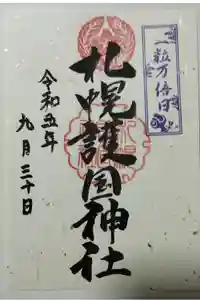 一粒万倍日
札幌護国神社
令和五年
九月三十日